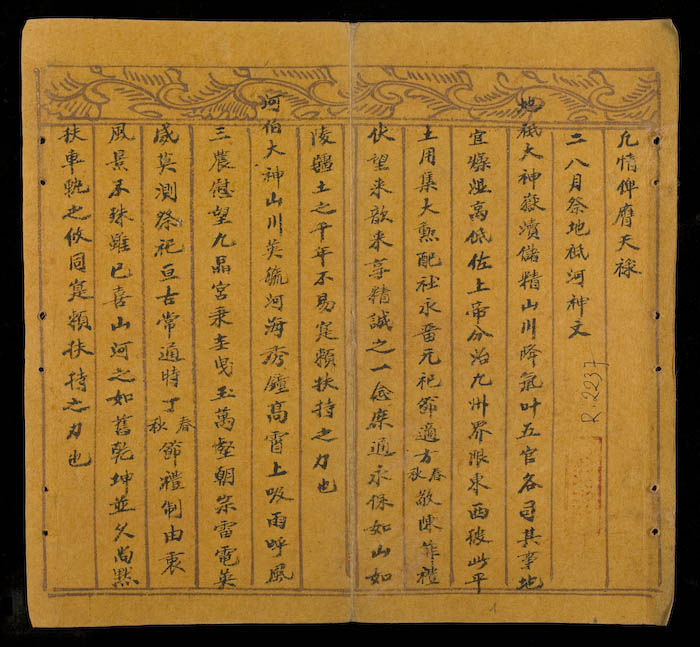 凡情俾膺天祿
二八月祭地祇河神文
地祇大神嶽瀆儲精山川降氣叶五官各司其事地
宜燥湿高低佐上帝分治九州界限東西彼此平
土用集大勲配社永畨元祀節適方春秋敬陳菲禮
伏望来歆来享精誠之一念庶通永保如山如
陵疆土之千年不易寔頼扶持之力也
河伯大神山川英號河海秀鐘高霄上吸雨呼風
三農慰望九晶宮秉圭曳玉萬壑朝宗雷電英
威莫測祭祀亘古常通時丁春秋節禮制由衷
風景不殊雖已喜山河之如舊乾坤並久尚黙
扶車軏之攸同寔頼扶持之力也
R.2237
1